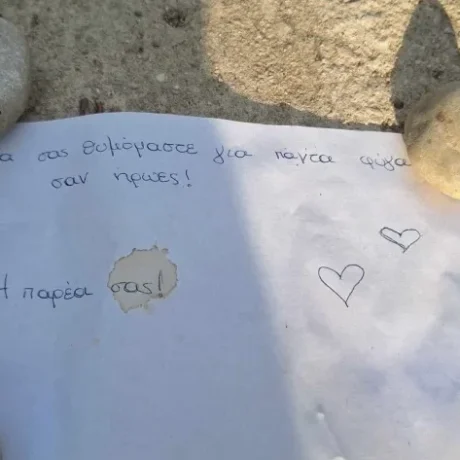 α σας θυμόμαστε για πάντα φύγα
σαν ήρωες!
Η παρέα σας!